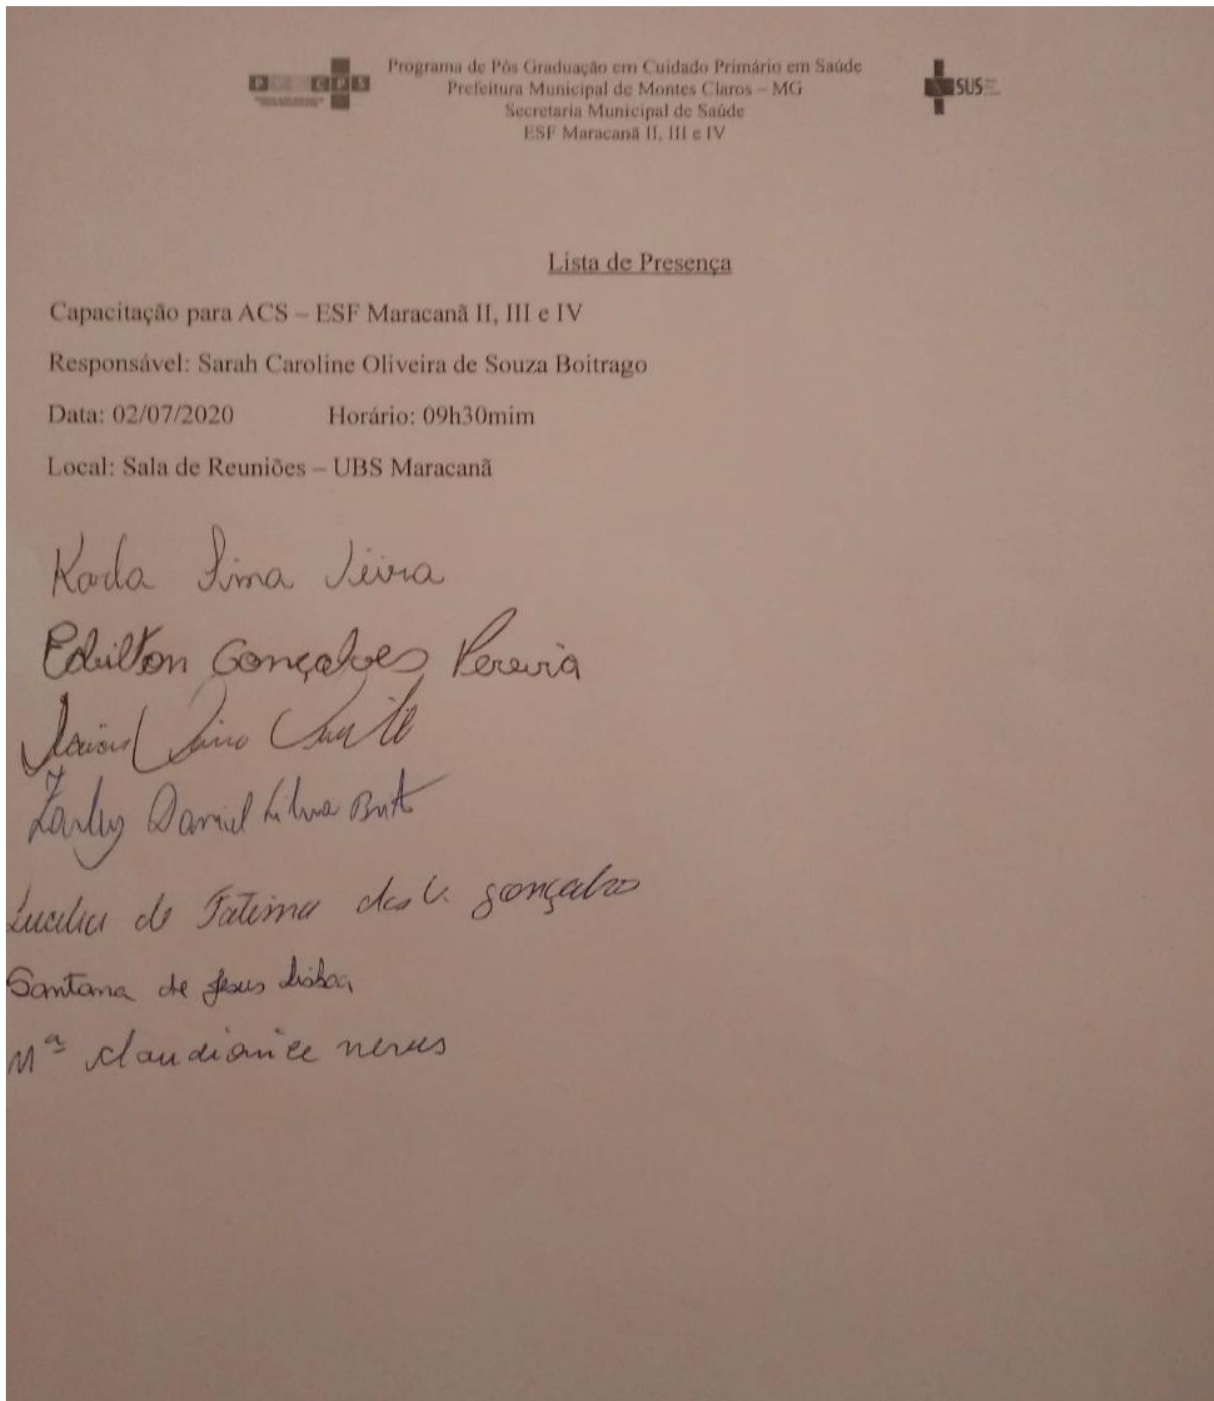 Programa de Pós Graduação em Cuidado Primário em Saúde
Prefeitura Municipal de Montes Claros – MG
Secretaria Municipal de Saúde
ESF Maracanã II, III e IV
SUS
Lista de Presença
Capacitação para ACS – ESF Maracanã II, III e IV
Responsável: Sarah Caroline Oliveira de Souza Boitrago
Data: 02/07/2020 Horário: 09h30mim
Local: Sala de Reuniões – UBS Maracanã
Karla Lima Vieira
Edilton Gonçalves Pereira
Daniel Silva
de Fatima das Gonçalves
Santana de Jesus Lisboa
Mª Claudianice neves